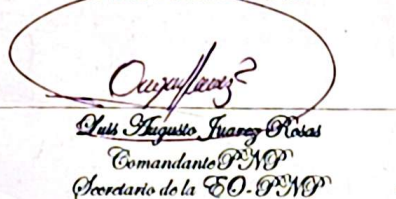 Luis Augusto Juarez Rosas
Comandante PNP
Secretario de la EO-PNP